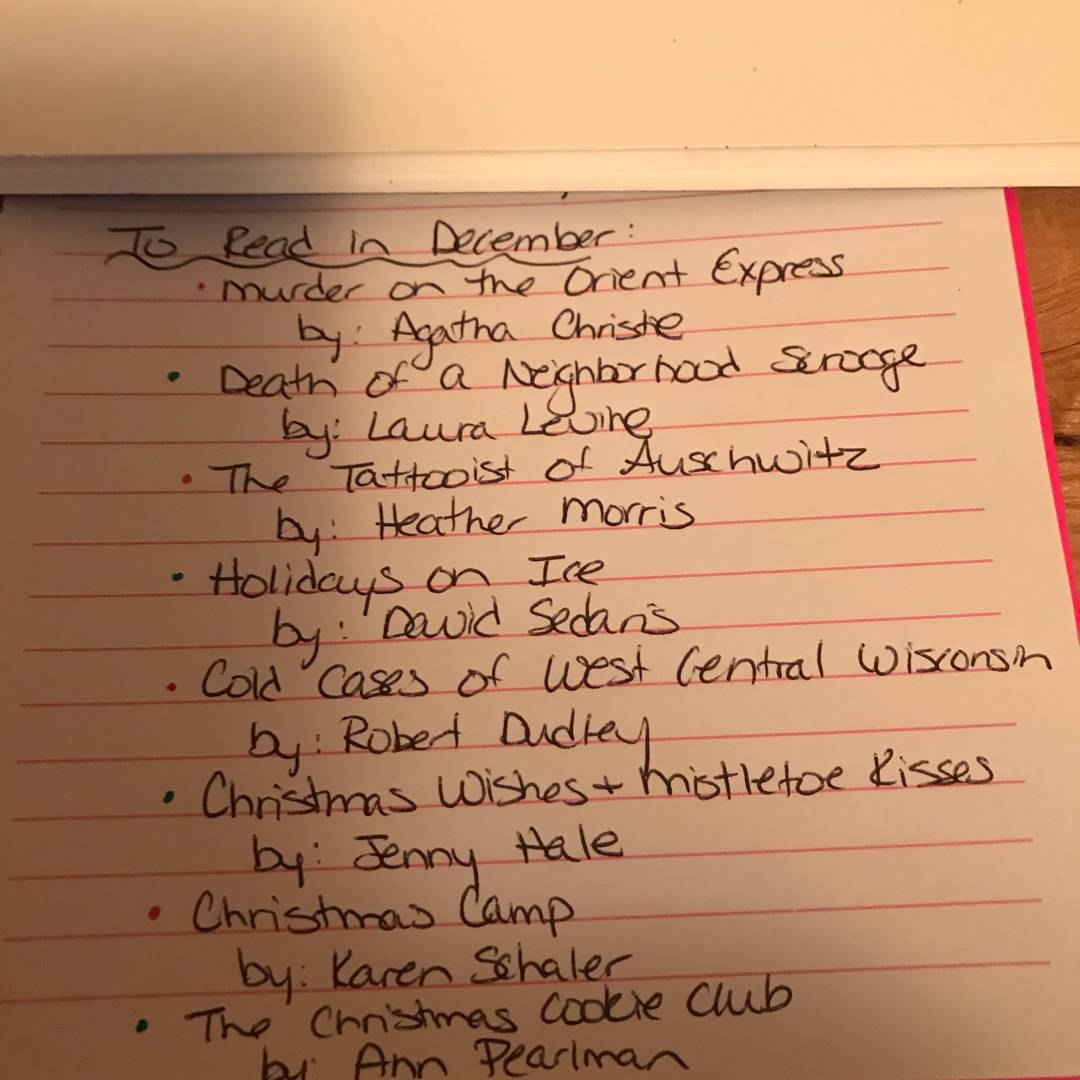 To Read in December:
• Murder on the Orient Express
by: Agatha Christie
• Death of a Neighborhood Scrooge
by: Laura Levine
• The Tattooist of Auschwitz
by: Heather Morris
• Holidays on Ice
by: David Sedaris
• Cold Cases of West Central Wisconsin
by: Robert Dudley
• Christmas Wishes + Mistletoe Kisses
by: Jenny Hale
• Christmas Camp
by: Karen Schaler
• The Christmas Cookie Club
by: Ann Pearlman